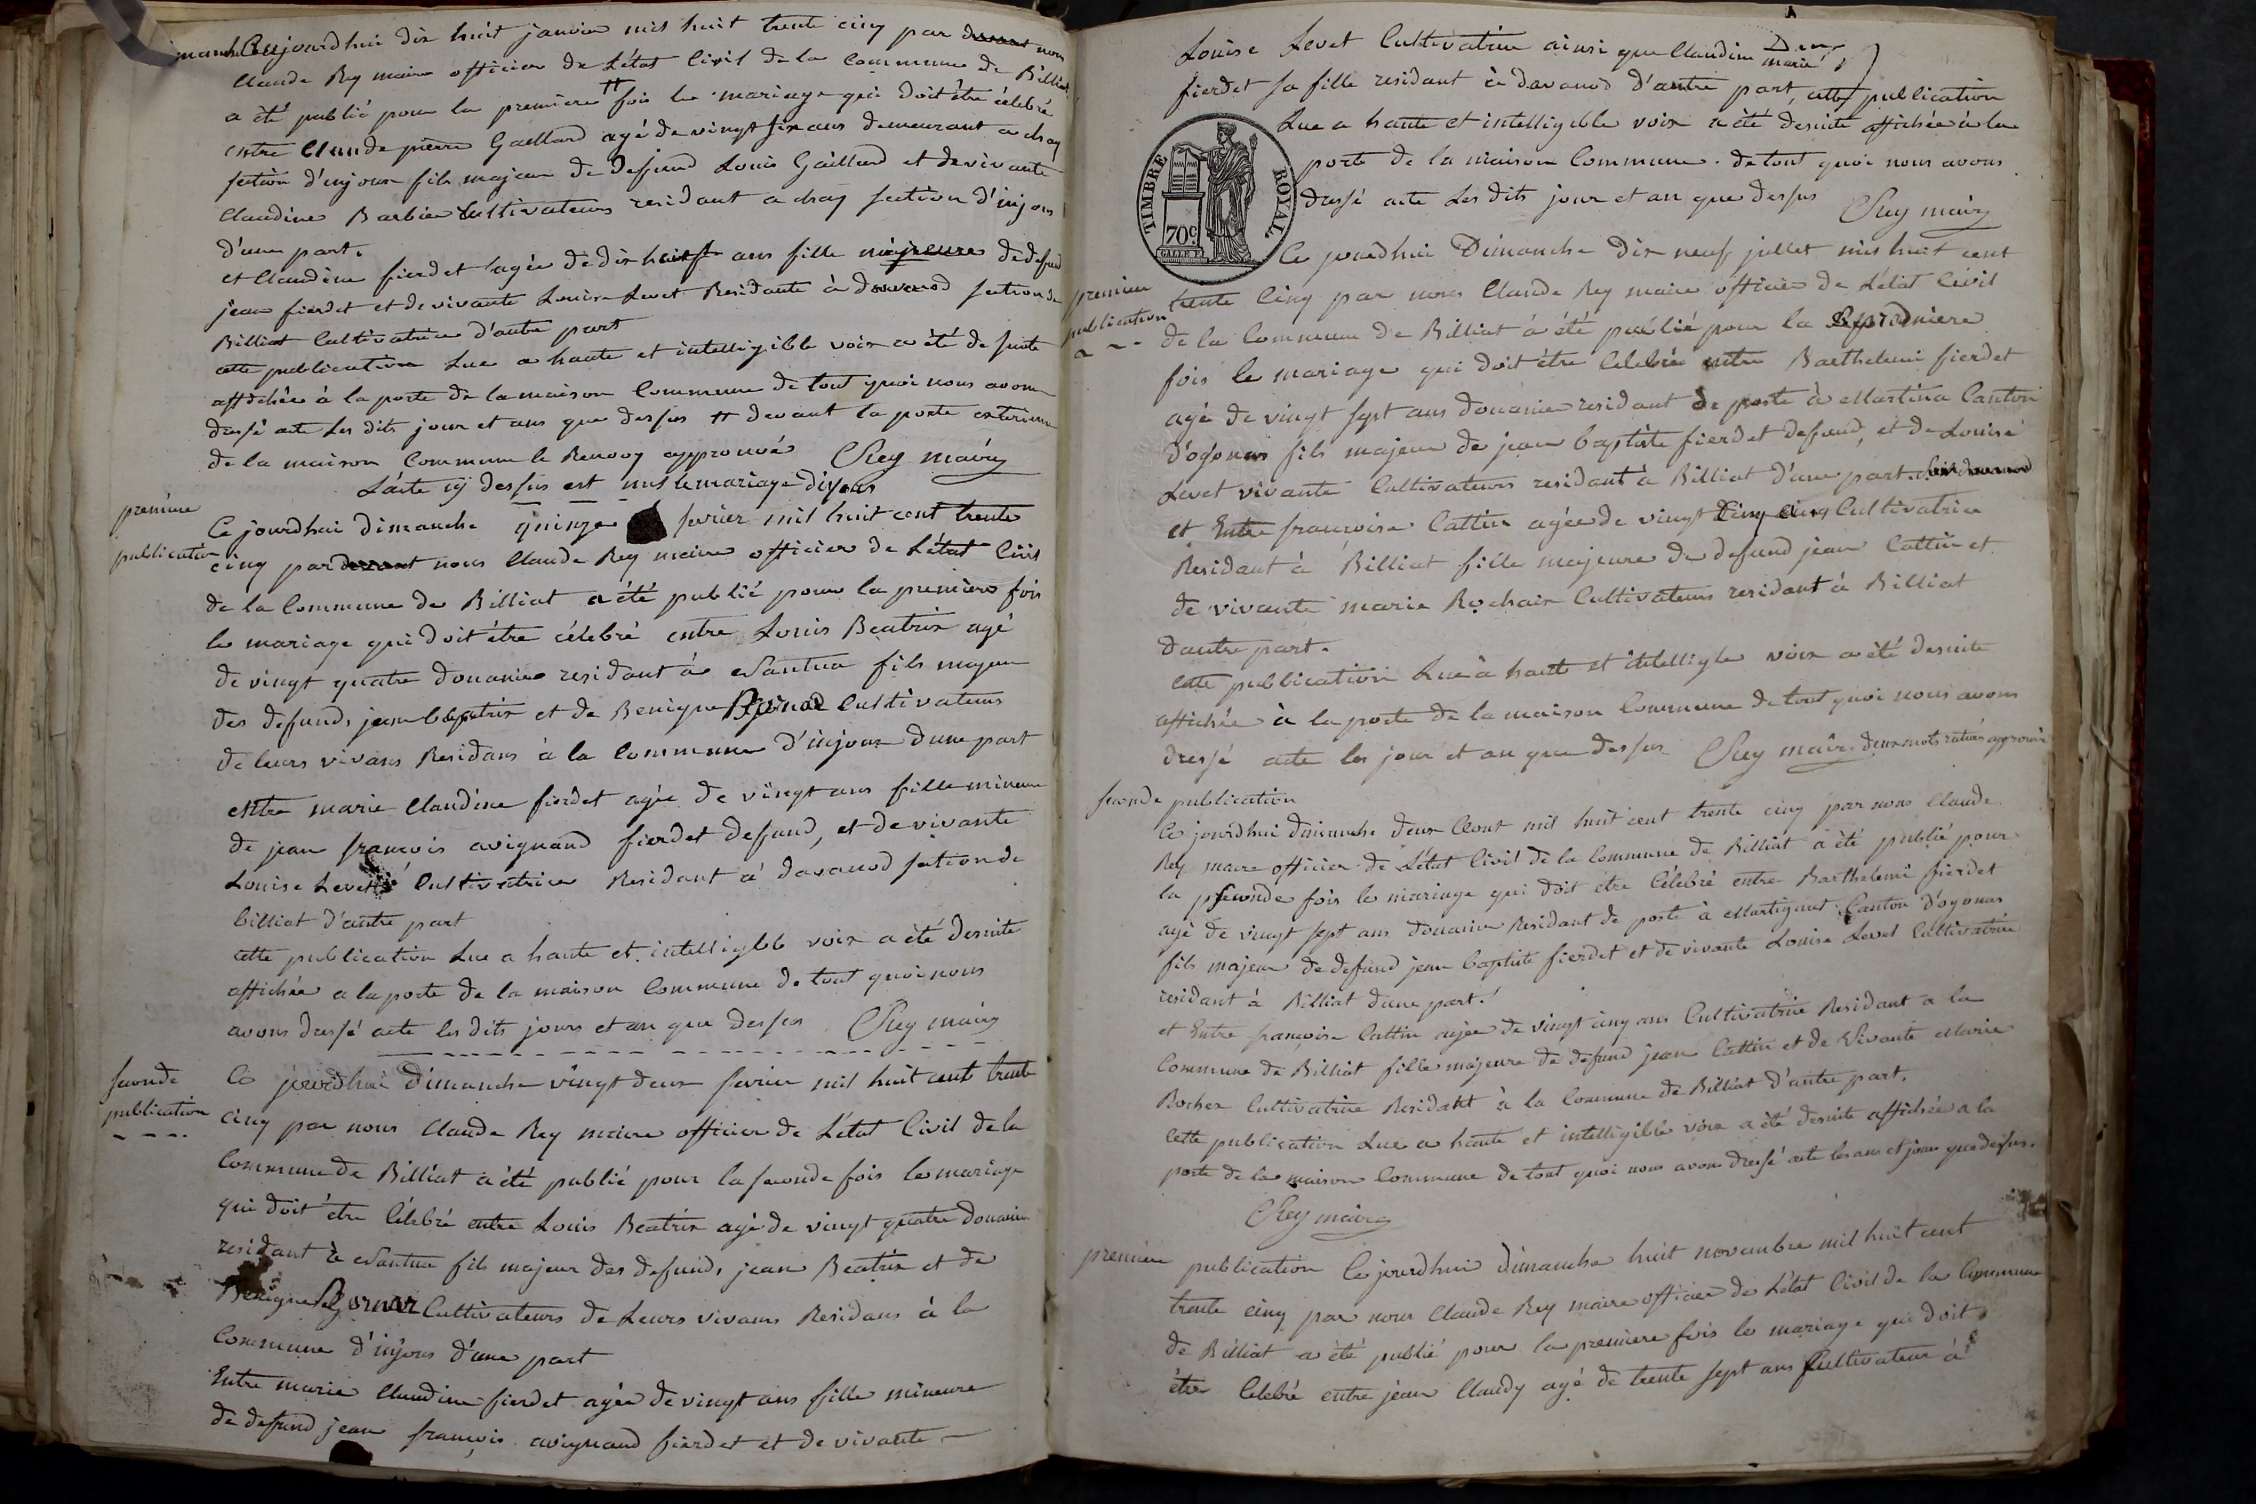 Aujourdhui dix huit janvier mil huit trente cinq par devant nous
Claude Rey maire officier de L'état Civil de la Commune de Billiat
a été publié pour la premiere # fois le mariage qui doit être célebré
entre Claude pierre Gaillard agé de vingt six ans demeurant a chay
section d'injoux fils majeur de deffund Louis Gaillard et de vivante
Claudine Barbier Cultivateurs residant a chay section d'injoux
d'une part.
et Claudine fierdet agée de dix huit ans fille mineure de defund
jean fierdet et de vivante Louise Levet Residante à davanod section de
Billiat Cultivatrice d'autre part
cette publication Lue a haute et intelligible voix a été de suite
affichée à la porte de la maison Commune de tout quoi nous avons
dressé acte Les dits jour et ans que dessus # devant la porte exterieure
de la maison Commune le Renvoy approuvé CRey maire
L'acte cy dessus est nul le mariage
premiere
publication
Ce jourdhui dimanche quinze fevrier mil huit cent trente
cinq par devant nous Claude Rey maire officier de L'état Civil
de la Commune de Billiat a été publié pour la premiere fois
le mariage qui doit être célebré entre Louis Beatrix agé
de vingt quatre douanier residant à Nantua fils majeur
des defunds jean beatrix et de Benigne Cultivateurs
de leurs vivans Residans à la Commune d'injoux d'une part
entre marie Claudine fierdet agée de vingt ans fille mineure
de jean françois avignand fierdet defund, et de vivante
Louise Levet Cultivatrice Residant à davanod section de
billiat d'autre part
cette publication Lue a haute et intelligible voix a été desuite
affichée a la porte de la maison Commune de tout quoi nous
avons dressé acte les dits jours et an que dessus CRey maire
seconde
publication
Ce jourdhui dimanche vingt deux fevrier mil huit cent trente
cinq par nous Claude Rey maire officier de L'état Civil de la
Commune de Billiat a été publié pour la seconde fois le mariage
qui doit être Célebré entre Louis Beatrix agé de vingt quatre douanier
residant à Nantua fils majeur des defunds jean Beatrix et de
Benigne Cultivateurs de Leurs vivans Residans à la
Commune d'injoux d'une part
Entre marie Claudine fierdet agée de vingt ans fille mineure
de defund jean françois avignand fierdet et de vivante
Louise Levet Cultivatrice ainsi que Claudine marie
fierdet sa fille residant à davanod d'autre part, cette publication
Lue a haute et intelligible voix a été desuite affichée à la
porte de la maison Commune. de tout quoi nous avons
dressé acte Les dits jour et an que dessus CRey maire
TIMBRE ROYAL
70c
premiere
publication
Ce jourdhui Dimanche dix neuf jullet mil huit cent
trente Cinq par nous Claude Rey maire officier de L'état Civil
de la Commune de Billiat à été publié pour la premiere
fois le mariage qui doit être Celebré entre Barthelemi fierdet
agé de vingt sept ans douanier residant de poste à Martina Canton
d'ogonnas fils majeur de jean baptiste fierdet defund, et de Louise
Levet vivante Cultivateurs residant à Billiat d'une part.
et Entre françoise Cattin agée de vingt Cinq Cultivatrice
Residant à Billiat fille majeure de defund jean Cattin et
de vivante marie Rochaix Cultivateurs residant à Billiat
dautre part.
cette publication Lue à haute et intelligle voix a été desuite
affichée à la porte de la maison Commune de tout quoi nous avons
dressé acte les jour et an que dessus CRey maire deux mots raturés approuvé
seconde publication
Ce jourdhui dimanche deux Aout mil huit cent trente cinq par nous Claude
Rey maire officier de L'état Civil de la Commune de Billiat a été publié pour
la seconde fois le mariage qui doit être Célebré entre Barthelemi fierdet
agé de vingt sept ans douanier Residant de poste à Martignat Canton d'oyonas
fils majeur de defund jean baptiste fierdet et de vivante Louise Levet Cultivatrice
residant à Billiat d'une part.
et Entre françoise Cattin agée de vingt cinq ans Cultivatrice Residant a la
Commune de Billiat fille majeure de defund jean Cattin et de Vivante Marie
Rochex Cultivatrice Residant à la Commune de Billiat d'autre part.
Cette publication Lue a haute et intelligible voix a été desuite affichée a la
porte de la maison Commune de tout quoi nous avons dressé acte les ans et jour que dessus.
CRey maire
premiere publication Ce jourdhui dimanche huit novembre mil huit cent
trente cinq par nous Claude Rey maire officier de L'état Civil de la Commune
de Billiat a été publié pour la premiere fois le mariage qui doit
être Celebré entre jean Claudy agé de trente sept ans Cultivateur à